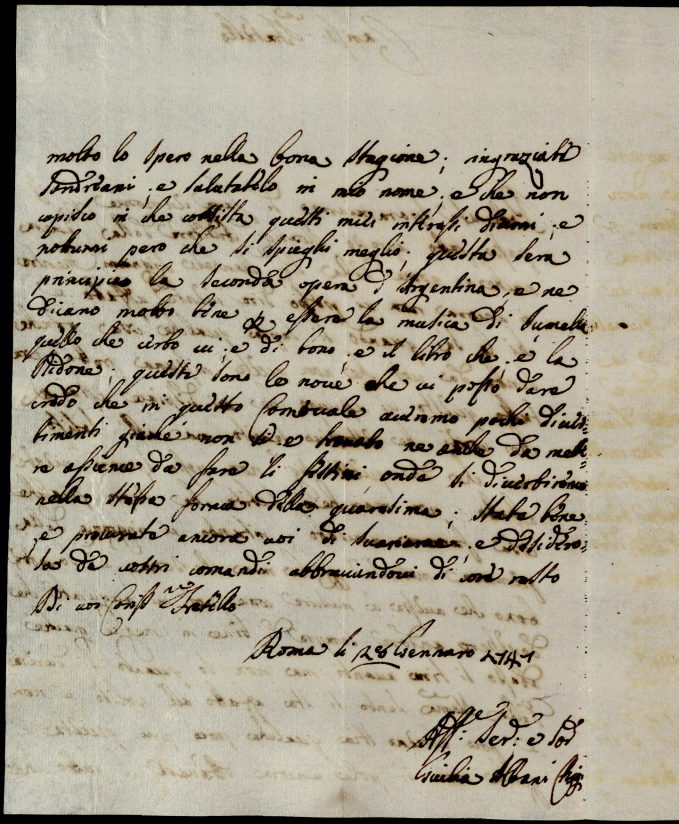 molto lo spero nella bona stagione; ingraziate
Sandreani, e salutatelo in mio nome, e che non
capisco in che consista questi miei interassi diurni, e
noturni pero che si spieghi meglio; questa sera
principia la seconda opera d'Argentina, e ne
dicano molto bene p essere la musica di Jumella
quello che certo vi, e di bono, e il libro che, e la
Didone; queste sono le nove che vi posso dare
credo che in questo Carnevale averemo pochi diver-
timenti giache non si e trovato ne anche da mett-
re assieme da fare li festini onde si divertiremo
nella stessa forma della quaresima; state bene
e procurate ancora voi di svariarve, e desidero-
sa de vostri comandi abbracciandovi di core resto
Di voi Carissmo Fratello
Roma li 28 Gennaro 1747
Affma Ser: e Sor
Cecilia Albani Chigi